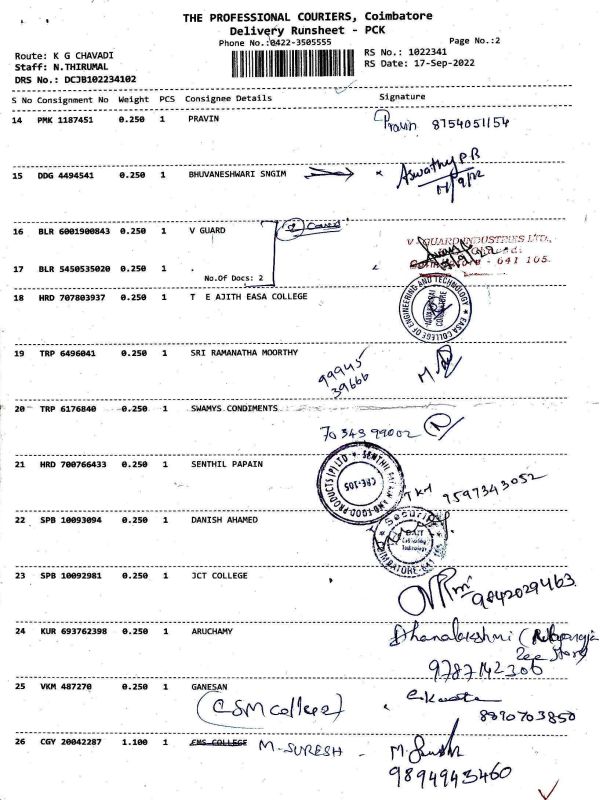 THE PROFESSIONAL COURIERS, Coimbatore
Delivery Runsheet - PCK
Phone No.:0422-3505555
Page No.:2
Route: K G CHAVADI
Staff: N.THIRUMAL
DRS No.: DCJB102234102
RS No.: 1022341
RS Date: 17-Sep-2022
S No Consignment No Weight PCS Consignee Details Signature
14 PMK 1187451 0.250 1 PRAVIN Pravin 8754051154
15 DDG 4494541 0.250 1 BHUVANESHWARI SNGIM Aswathy P B
17/9/22
16 BLR 6001900843 0.250 1 V GUARD
V-GUARD INDUSTRIES LTD.,
17 BLR 5450535020 0.250 1 641 105.
No.Of Docs: 2
18 HRD 707803937 0.250 1 T E AJITH EASA COLLEGE
EASA COLLEGE OF ENGINEERING AND TECHNOLOGY
COIMBATORE
19 TRP 6496041 0.250 1 SRI RAMANATHA MOORTHY
99945
39666
20 TRP 6176840 0.250 1 SWAMYS CONDIMENTS
70 343 99002
21 HRD 700766433 0.250 1 SENTHIL PAPAIN
SENTHIL PAPAIN AND FOOD PRODUCTS (P) LTD
CBE-105
9597343052
22 SPB 10093094 0.250 1 DANISH AHAMED
Security
COIMBATORE-641 105
23 SPB 10092981 0.250 1 JCT COLLEGE
9842029463
24 KUR 693762398 0.250 1 ARUCHAMY Dhanalakshmi
9787142306
25 VKM 487270 0.250 1 GANESAN
(CSM college)
8890703850
26 CGY 20042287 1.100 1 CMS COLLEGE M.SURESH
9894943460